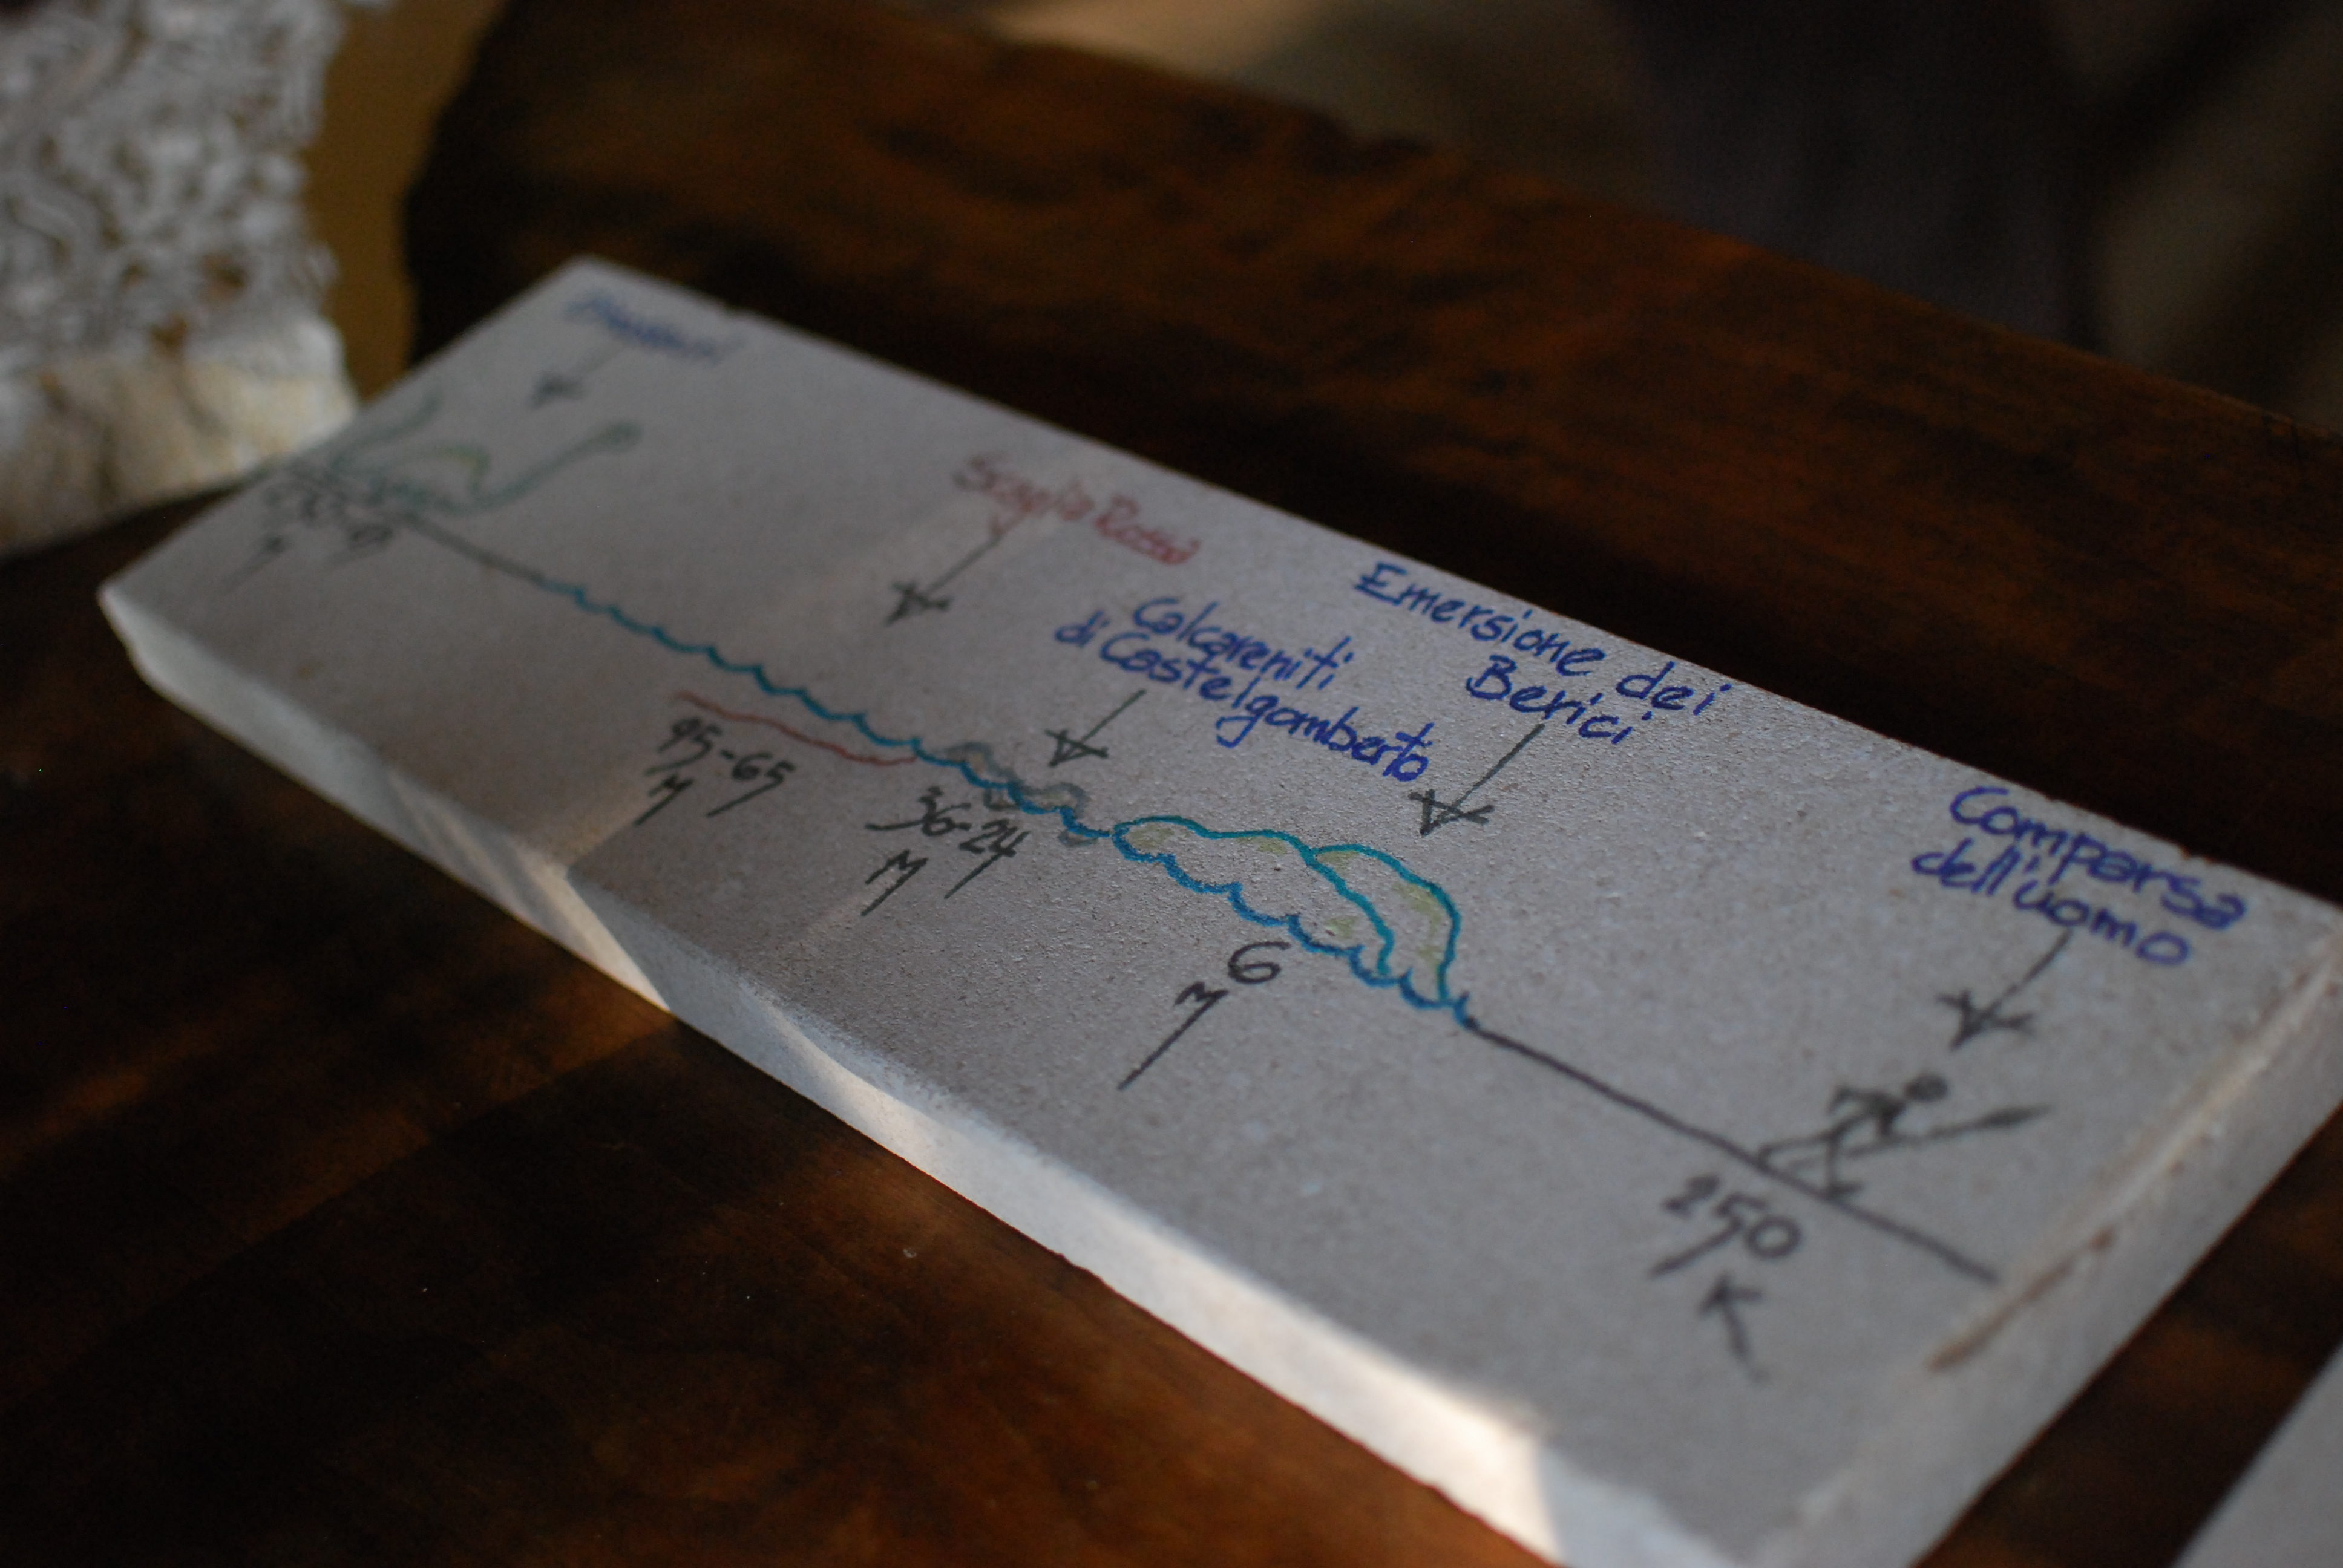 Scaglia Rossa
Calcareniti
di Castelgomberto
Emersione dei
Berici
Comparsa
dell'uomo
95-65
M
36-24
M
6
M
250
K